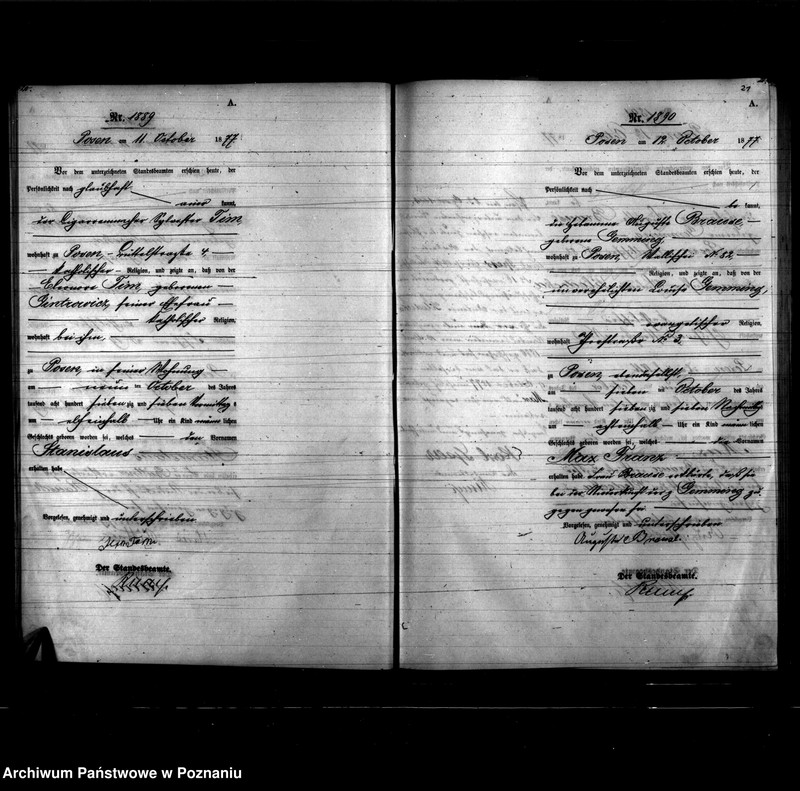 A.
Nr. 1889
Posen am 11 October 1877
Vor dem unterzeichneten Standesbeamten erschien heute, der
Persönlichkeit nach glaubhaft
kannt,
der Cigarrenmacher Sylvester Tim,
wohnhaft zu Posen, Mittelstraße 4
katholischer Religion, und zeigte an, daß von der
Eleonore Tim, geborenen
seiner Ehefrau
katholischer Religion,
wohnhaft bei ihm,
zu Posen, in seiner Wohnung
am neun ten October des Jahres
tausend acht hundert siebenzig und sieben Vormittag s
um elf einhalb Uhr ein Kind männlichen
Geschlechts geboren worden sei, welches den Vornamen
Stanislaus
erhalten habe
Vorgelesen, genehmigt und unterschrieben
Der Standesbeamte.
27
A.
Nr. 1890
Posen am 12 October 1877
Vor dem unterzeichneten Standesbeamten erschien heute, der
Persönlichkeit nach
be kannt,
die Hebamme Auguste Brause,
geborene Gemming
wohnhaft zu Posen, Wallischei N 52,
Religion, und zeigte an, daß von der
unverehelichten Louise Gemming,
evangelischer Religion,
wohnhaft N 3,
zu Posen ebendaselbst
am sieben ten October des Jahres
tausend acht hundert siebenzig und sieben Nachmittag
um acht einhalb Uhr ein Kind männlichen
Geschlechts geboren worden sei, welches die Vornamen
Max Franz
erhalten habe. Frau Brause erklärte, daß sie
bei der Niederkunft der Gemming zu-
gegen gewesen sei
Vorgelesen, genehmigt und unterschrieben
Auguste Brause.
Der Standesbeamte.
Archiwum Państwowe w Poznaniu